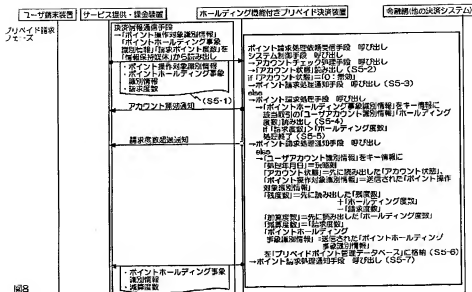 ユーザ端末装置
サービス提供・課金装置
ホールディング機能付きプリペイド決済装置
金融機関(他の決済システム)
プリペイド請求
フェーズ
決済情報通信手段
→「ポイント操作対象識別情報」
「ポイントホールディング事象
識別情報」「請求ポイント度数」を
「情報保持媒体」から読み出し
・ポイント操作対象識別情報
・ポイントホールディング事象
識別情報
・請求度数
(S5-1)
アカウント無効通知
請求度数超過通知
ポイント請求処理依頼受信手段 呼び出し
システム制御手段 呼び出し
→アカウントチェック処理手段 呼び出し
→「アカウント状態」読み出し (S5-2)
if 「アカウント状態」=「0:無効」
→ポイント請求処理通知手段 呼び出し (S5-3)
else
→ポイント請求処理手段 呼び出し
→「ポイントホールディング事象識別情報」をキー情報に
該当取引の「ユーザアカウント識別情報」「ホールディング
度数」読み出し (S5-4)
if 「請求度数」>「ホールディング度数」
処理終了 (S5-5)
→ポイント請求処理通知手段 呼び出し
else
→「ユーザアカウント識別情報」をキー情報に
「処理年月日」=現時刻
「アカウント状態」=先に読み出した「アカウント状態」、
「ポイント操作対象識別情報」=送信された「ポイント操作
対象識別情報」
「残度数」=先に読み出した「残度数」
+「ホールディング度数」
-「請求度数」
「加算度数」=先に読み出した「ホールディング度数」
「減算度数」=「請求度数」
「ポイントホールディング
事象識別情報」=送信された「ポイントホールディング
事象識別情報」
を「プリペイドポイント管理データベース」に格納 (S5-6)
→ポイント請求処理通知手段 呼び出し (S5-7)
・ポイントホールディング事象
識別情報
・減算度数
図8